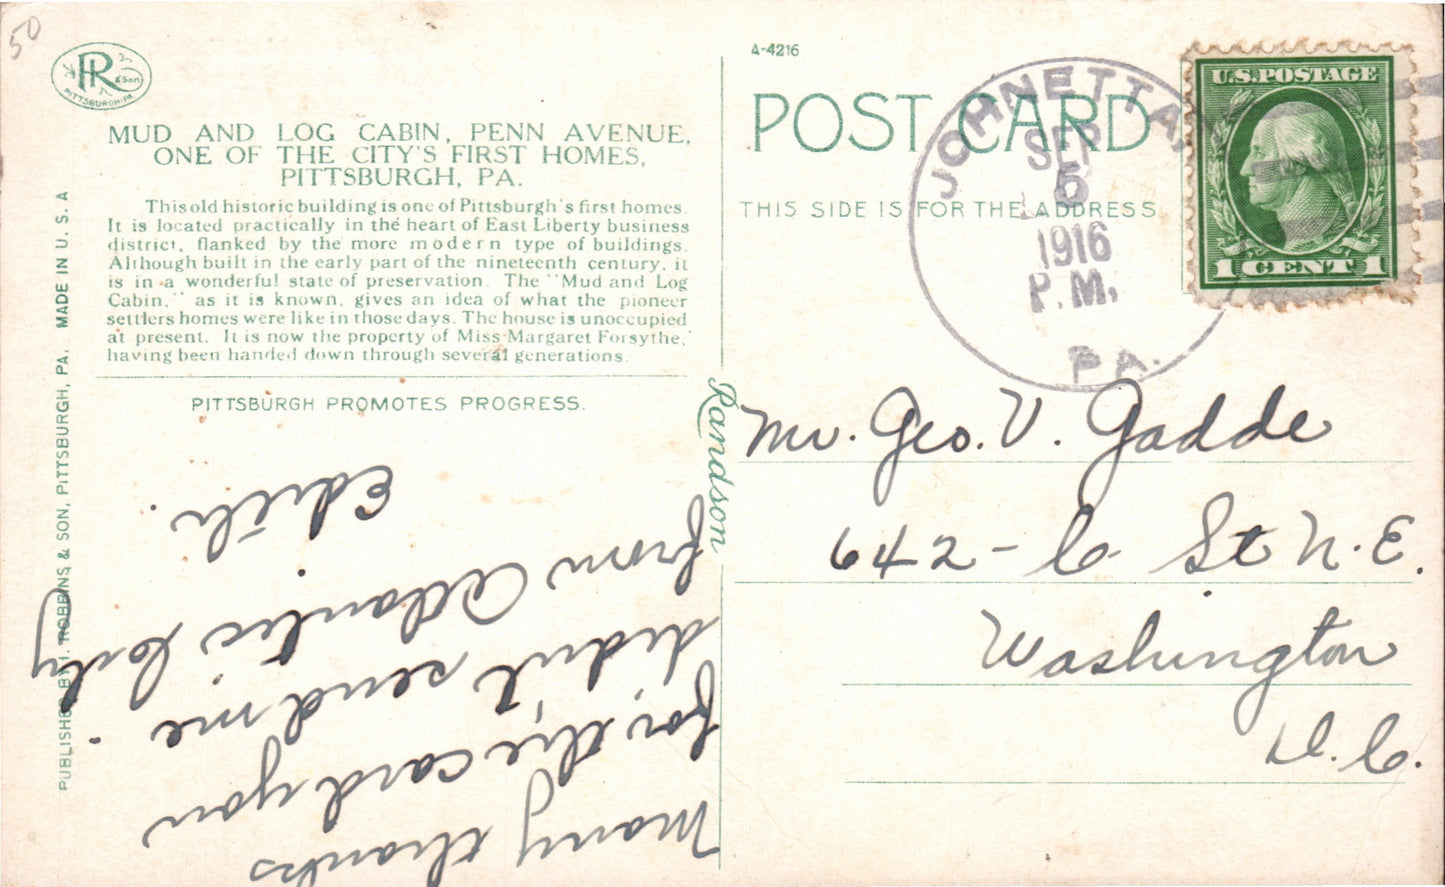 50
HR & Son
PITTSBURGH, PA.
MUD AND LOG CABIN, PENN AVENUE,
ONE OF THE CITY'S FIRST HOMES,
PITTSBURGH, PA.
This old historic building is one of Pittsburgh's first homes.
It is located practically in the heart of East Liberty business
district, flanked by the more modern type of buildings.
Although built in the early part of the nineteenth century, it
is in a wonderful state of preservation. The "Mud and Log
Cabin," as it is known, gives an idea of what the pioneer
settlers homes were like in those days. The house is unoccupied
at present. It is now the property of Miss Margaret Forsythe,
having been handed down through several generations.
PITTSBURGH PROMOTES PROGRESS.
PUBLISHED BY I. ROBBINS & SON, PITTSBURGH, PA. MADE IN U. S. A
Many thanks
for, the card you
didn't send me
from Atlantic City
Edith.
Randson
A-4216
POST CARD
THIS SIDE IS FOR THE ADDRESS
JOHNETTA,
SEP
5
1916
P.M.
PA.
U.S. POSTAGE
1 CENT 1
Mr. Geo. V. Gadde
642 - C St N.E.
Washington
D.C.